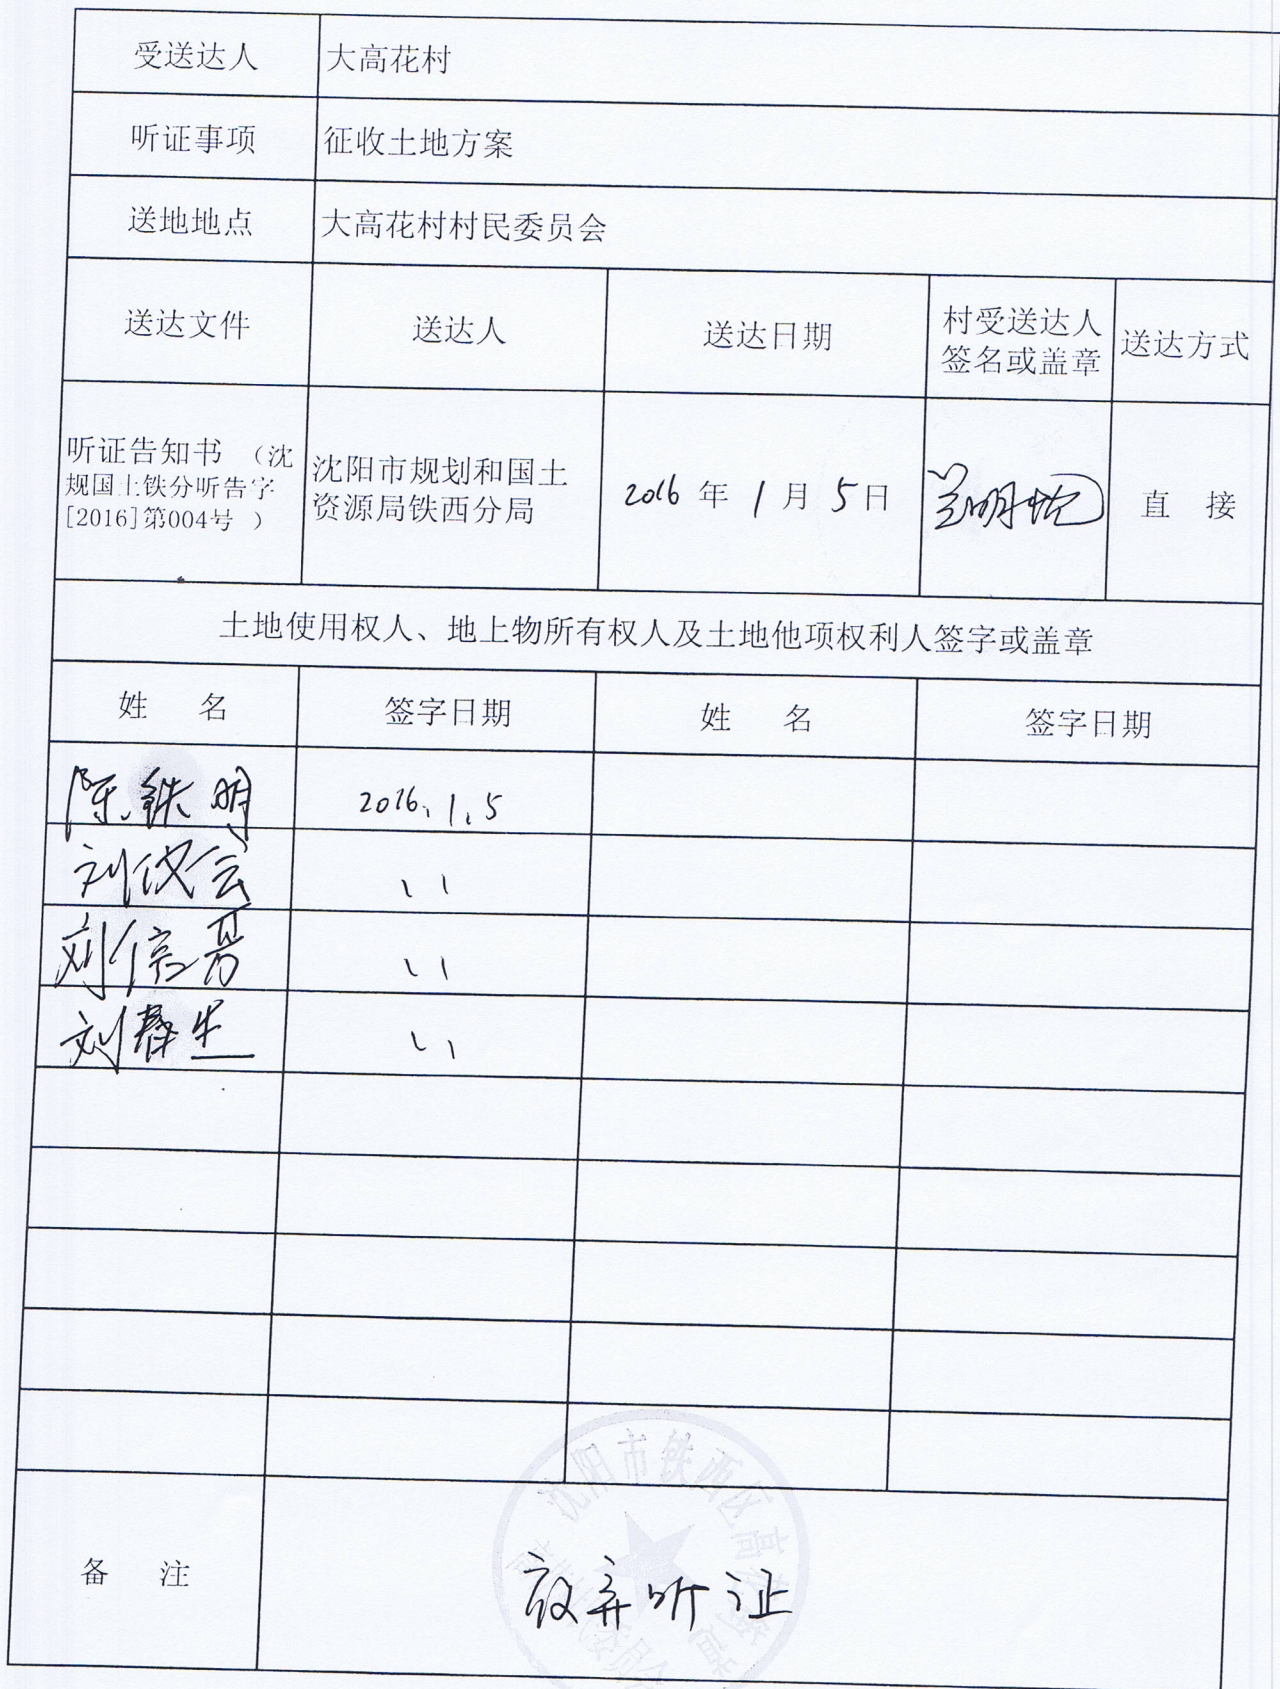 受送达人 大高花村
听证事项 征收土地方案
送地地点 大高花村村民委员会
送达文件 送达人 送达日期 村受送达人 送达方式
签名或盖章
听证告知书 （沈
规国土铁分听告字
[2016]第004号 ）
沈阳市规划和国土
资源局铁西分局
2016 年 1 月 5 日
直 接
土地使用权人、地上物所有权人及土地他项权利人签字或盖章
姓 名 签字日期 姓 名 签字日期
陈铁明 2016.1.5
刘 〃
刘信 〃
刘春生 〃
备 注
放弃听证
沈阳市铁西区高花街道